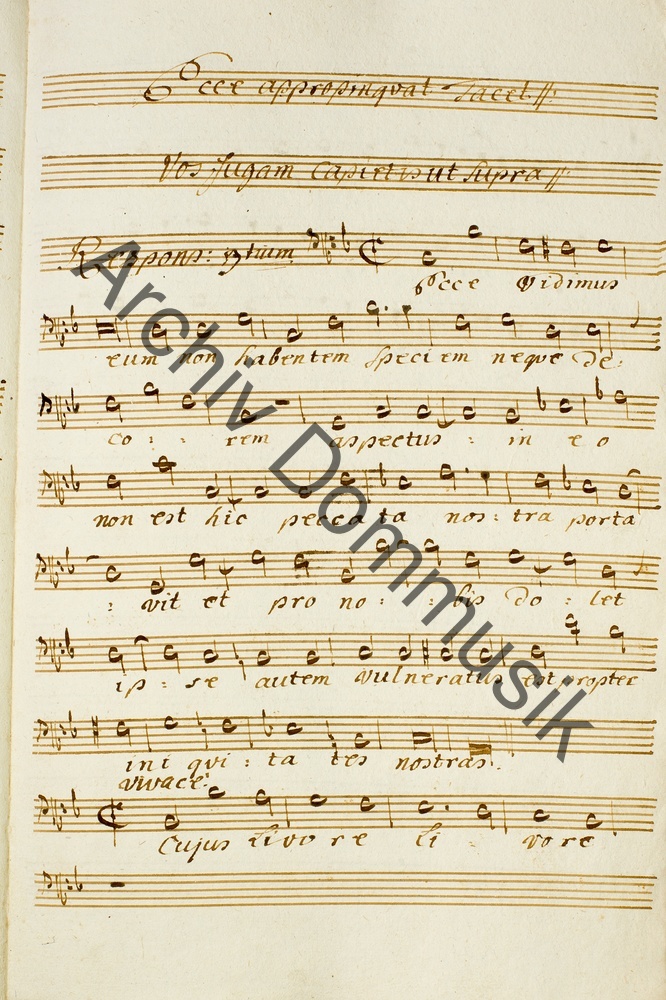 Ecce appropinquat Tacet //:
Vos fugam capietis ut supra //:
Respons: 3tium
Ecce vidimus
eum non habentem speciem neque de:
co : : rem aspectus : in eo
non est hic peccata nos: tra porta
: vit et pro no : : bis do : let
ip : se autem vulneratus est propter
ini qui : ta tes nostras.
vivace:
Cujus livo re li : vore
Archiv Dommusik